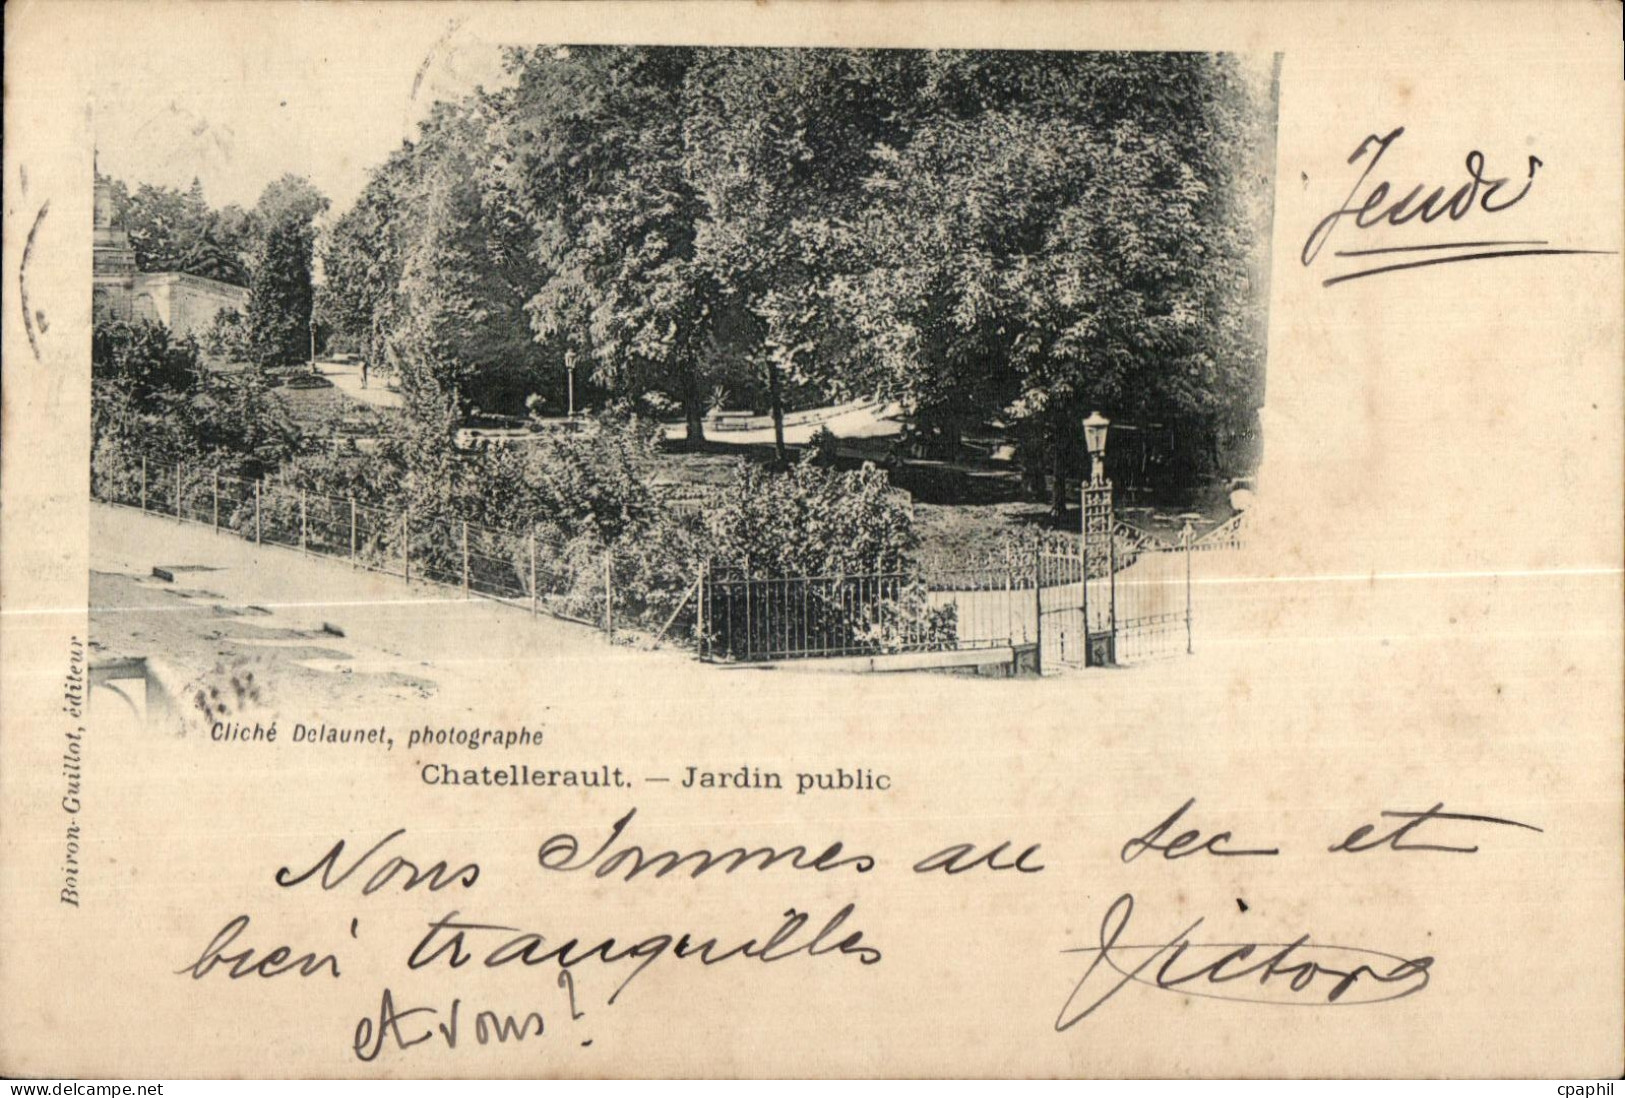 Jeudi
Boiron-Guillot, éditeur
Cliché Delaunet, photographe
Chatellerault. — Jardin public
Nous sommes au sec et
bien tranquilles
Victor
et vous?
www.delcampe.net
cpaphil